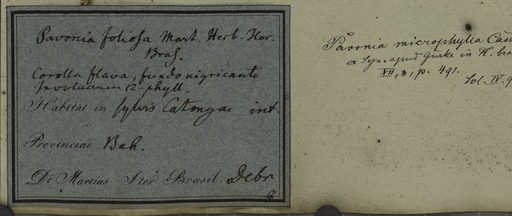 Pavonia foliosa Mart. Herb. Flor.
Bras.
Corolla flava, fundo nigricante
Involucrum 12-phyll.
Habitat in sylvis Catongas int.
Provinciae Bah.
Dr Martius Iter Brasil. Debr
Pavonia microphylla Cas
ex syn. apud Gürke in Fl. bras
XII, 3, p. 491.